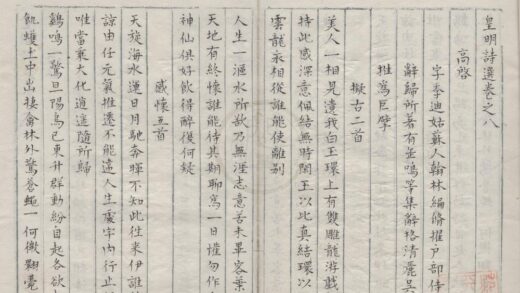 皇明詩選卷之八
高啓
字季迪姑蘇人翰林編脩擢戶部侍
辭歸所著有缶鳴等集辭格清麗吳
推為巨擘
擬古二首
美人一相見遺我白玉環上有雙雕龍游戲
持此感深意佩結無時閒玉以比真結環以
雲龍永相從誰能使離別
人生一漚水所欲乃無涯志意苦未畢容華
天地有終休誰能待其期聊為一日懽勿作
神仙俱好飲得醉復何疑
感懷五首
天旋海水運日月馳奔暉不知此往來伊誰
諒由任元氣推遷不能違人生處宇內行止
唯當乘大化逍遙隨所歸
鷄鳴一驚旦陽烏已東升群動紛自起各欲
飢蠖土中出捿禽林外驚蒼蠅一何微翱毫